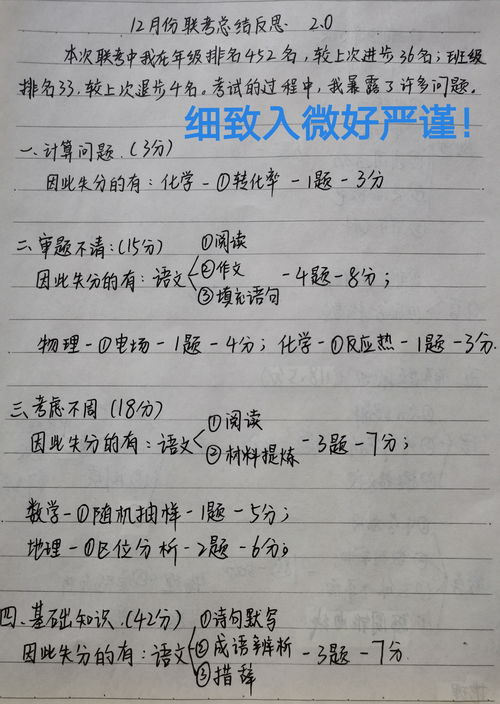 12月份联考总结反思 2.0
本次联考中我在年级排名452名，较上次进步36名；班级
排名33，较上次退步4名。考试的过程中，我暴露了许多问题。
细致入微好严谨！
一、计算问题.（3分）
因此失分的有：化学-①转化率-1题-3分
二、审题不清：（15分）
①阅读
因此失分的有：语文 ②作文 -4题-8分；
③填充语句
物理-①电场-1题-4分；化学-①反应热-1题-3分.
三、考虑不周（18分）
①阅读
因此失分的有：语文 -3题-7分；
②材料提炼
数学-①随机抽样-1题-5分；
地理-①区位分析-2题-6分。
四、基础知识.（42分） ①诗句默写
因此失分的有：语文 ②成语辨析 -3题-7分
③措辞